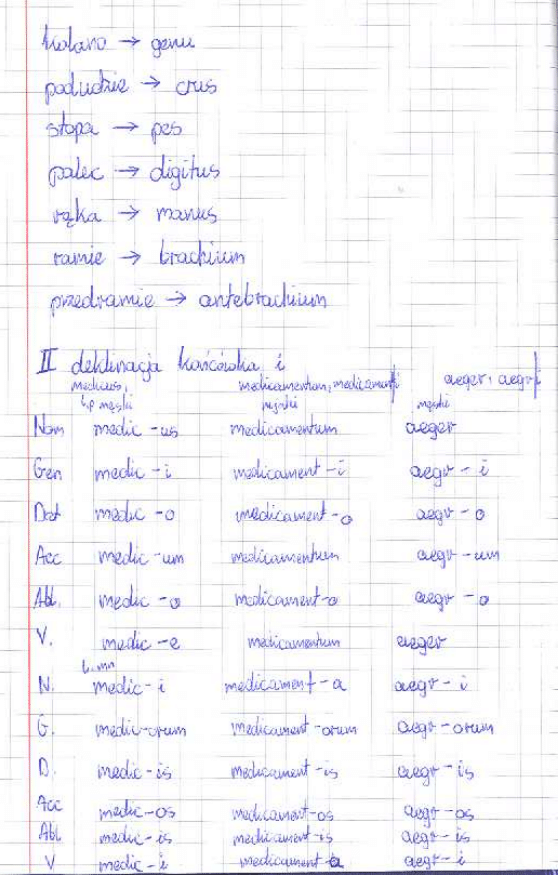 kolano → genu
podudzie → crus
stopa → pes
palec → digitus
ręka → manus
ramie → brachium
przedramie → antebrachium
II deklinacja końcówka i
medicus, medicamentum, medicamenti aeger, aegri
l.p męski nijaki męski
Nom medic-us medicamentum aeger
Gen medic-i medicament-i aegr-i
Dat medic-o medicament-o aegr-o
Acc medic-um medicamentum aegr-um
Abl. medic-o medicament-o aegr-o
V. medic-e medicamentum aeger
l. mn
N. medic-i medicament-a aegr-i
G. medic-orum medicament-orum aegr-orum
D. medic-is medicament-is aegr-is
Acc medic-os medicament-os aegr-os
Abl medic-is medicament-is aegr-is
V medic-i medicament-a aegr-i